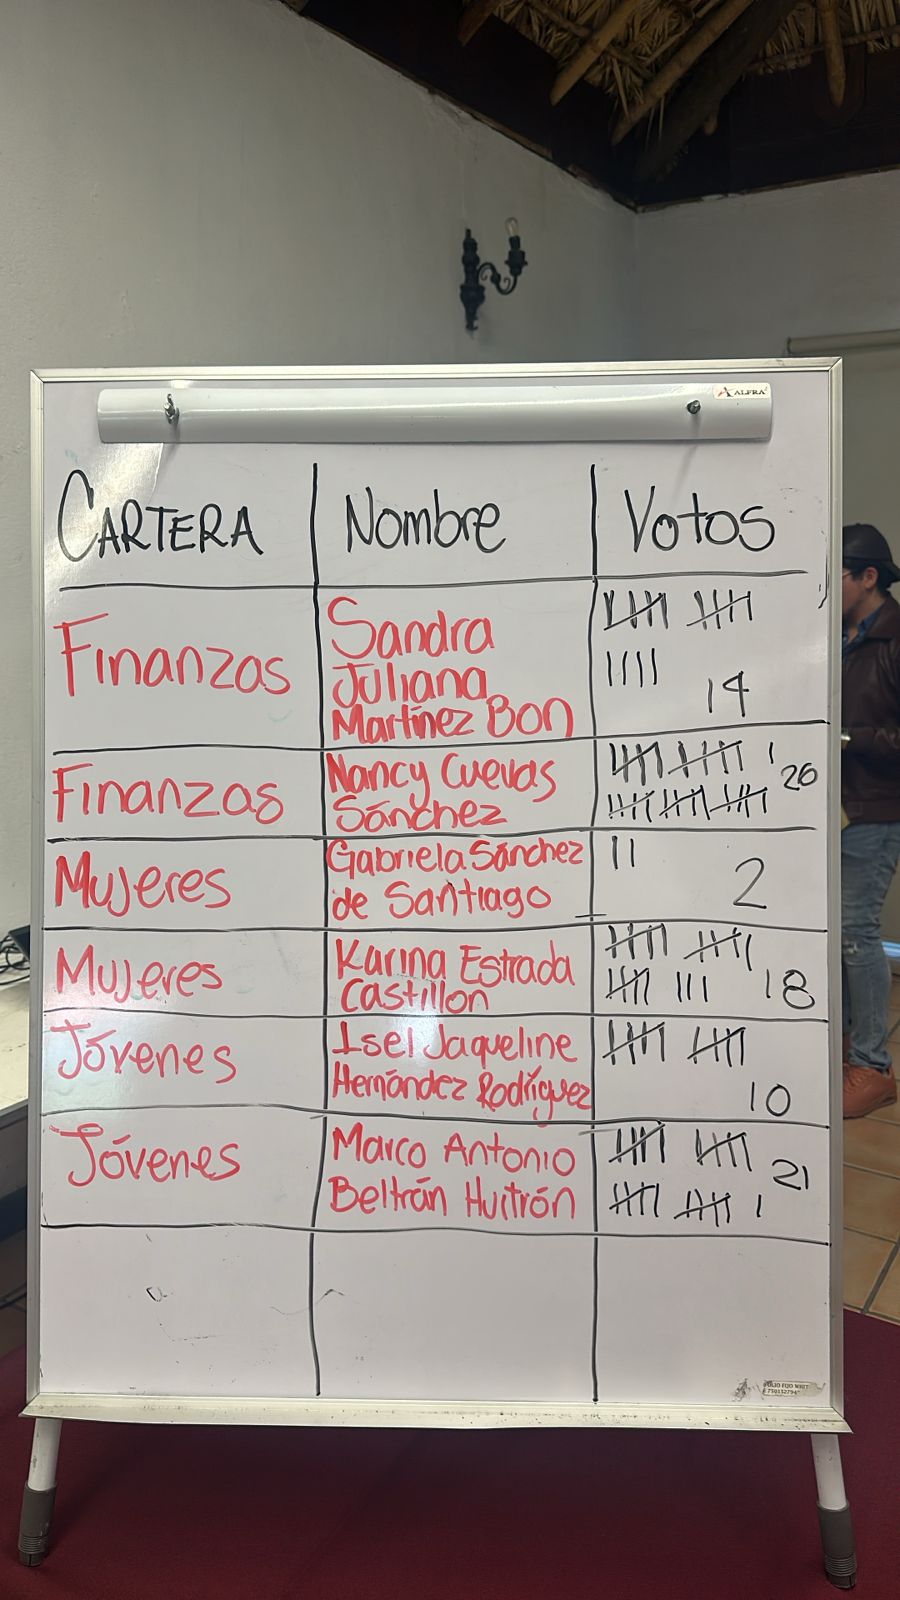 ALFRA
CARTERA Nombre Votos
Finanzas Sandra
Juliana
Martínez Bon 14
Finanzas Nancy Cuevas
Sánchez 26
Mujeres Gabriela Sánchez
de Santiago 2
Mujeres Karina Estrada
Castillon 18
Jóvenes Isel Jaqueline
Hernández Rodríguez 10
Jóvenes Marco Antonio
Beltrán Huitrón 21